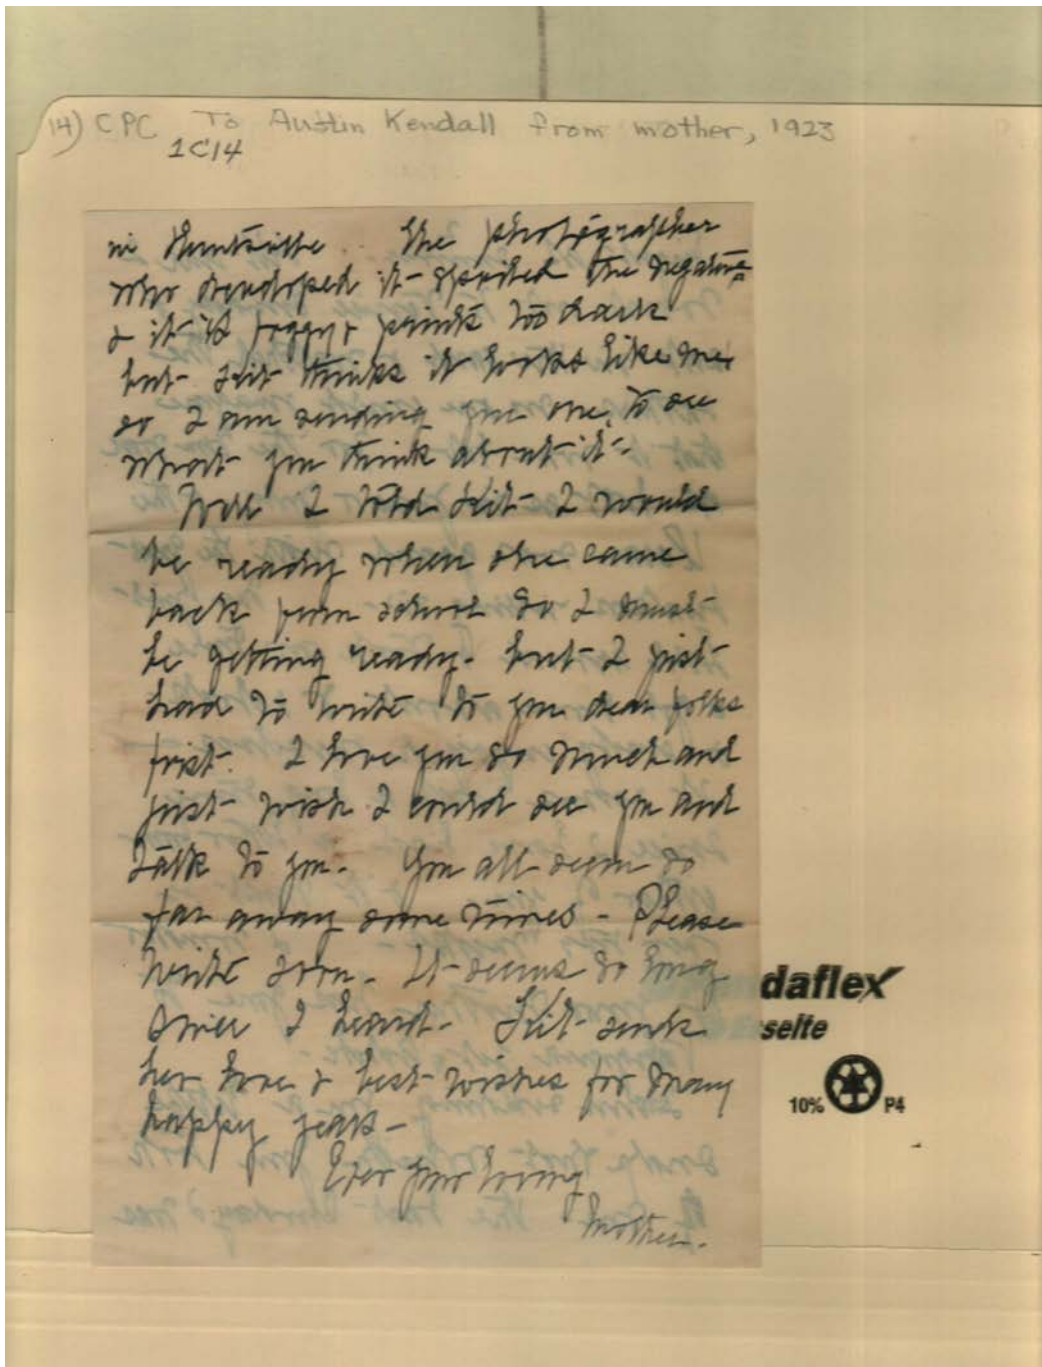 14) CPC To Austin Kendall from mother, 1923
1C14
in Huntsville. The photographer
who developed it spoiled the negative
& it is foggy & prints too dark
but Kit thinks it looks like me,
so I am sending you one, to see
what you think about it.
Well I told Kit I would
be ready when she came
back from school so I must
be getting ready. but I just
had to write to you dear folks
first. I love you so much and
just wish I could see you and
talk to you. You all seem so
far away some times - Please
write soon. It seems so long
since I heard. Kit sends
her love & best wishes for many
happy years -
Ever your loving
Mother.
daflex
seite
10% P4